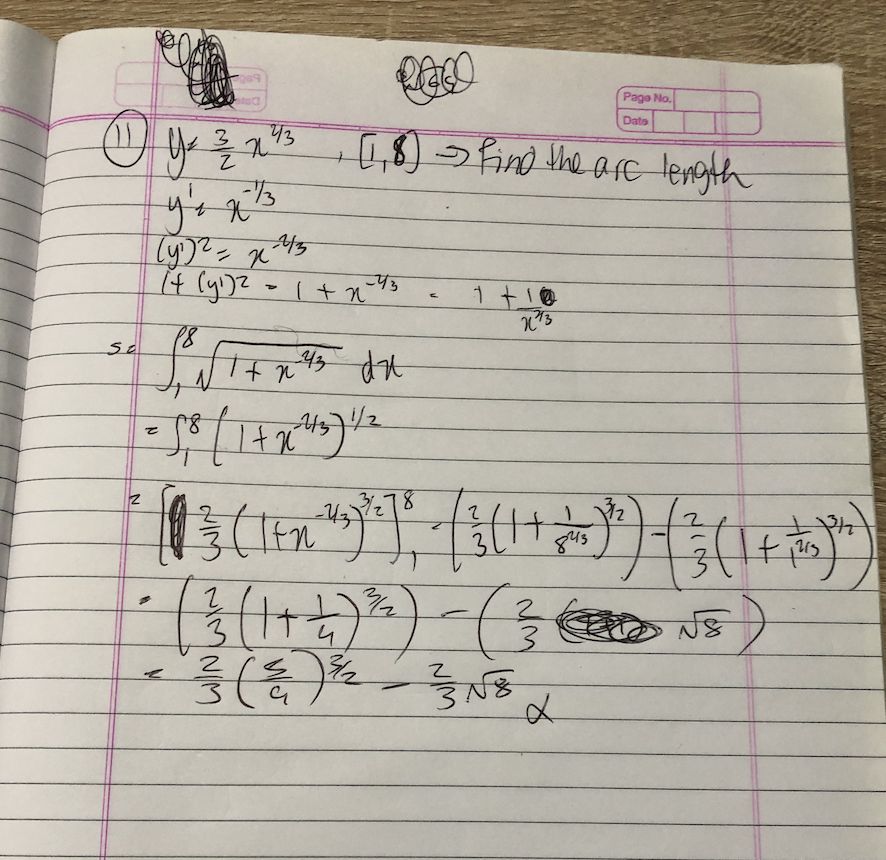 Page No.
Date
(11) y = 3/2 x^2/3 , [1,8] → Find the arc length
y' = x^-1/3
(y')^2 = x^-2/3
1 + (y')^2 = 1 + x^-2/3 = 1 + 1/x^2/3
s = ∫₁⁸ √(1 + x^-2/3) dx
= ∫₁⁸ (1 + x^-2/3)^1/2
= [2/3 (1 + x^-2/3)^3/2]₁⁸ = (2/3 (1 + 1/8^2/3)^3/2) - (2/3 (1 + 1/1^2/3)^3/2)
= (2/3 (1 + 1/4)^3/2) - (2/3 √8)
= 2/3 (5/4)^3/2 - 2/3 √8